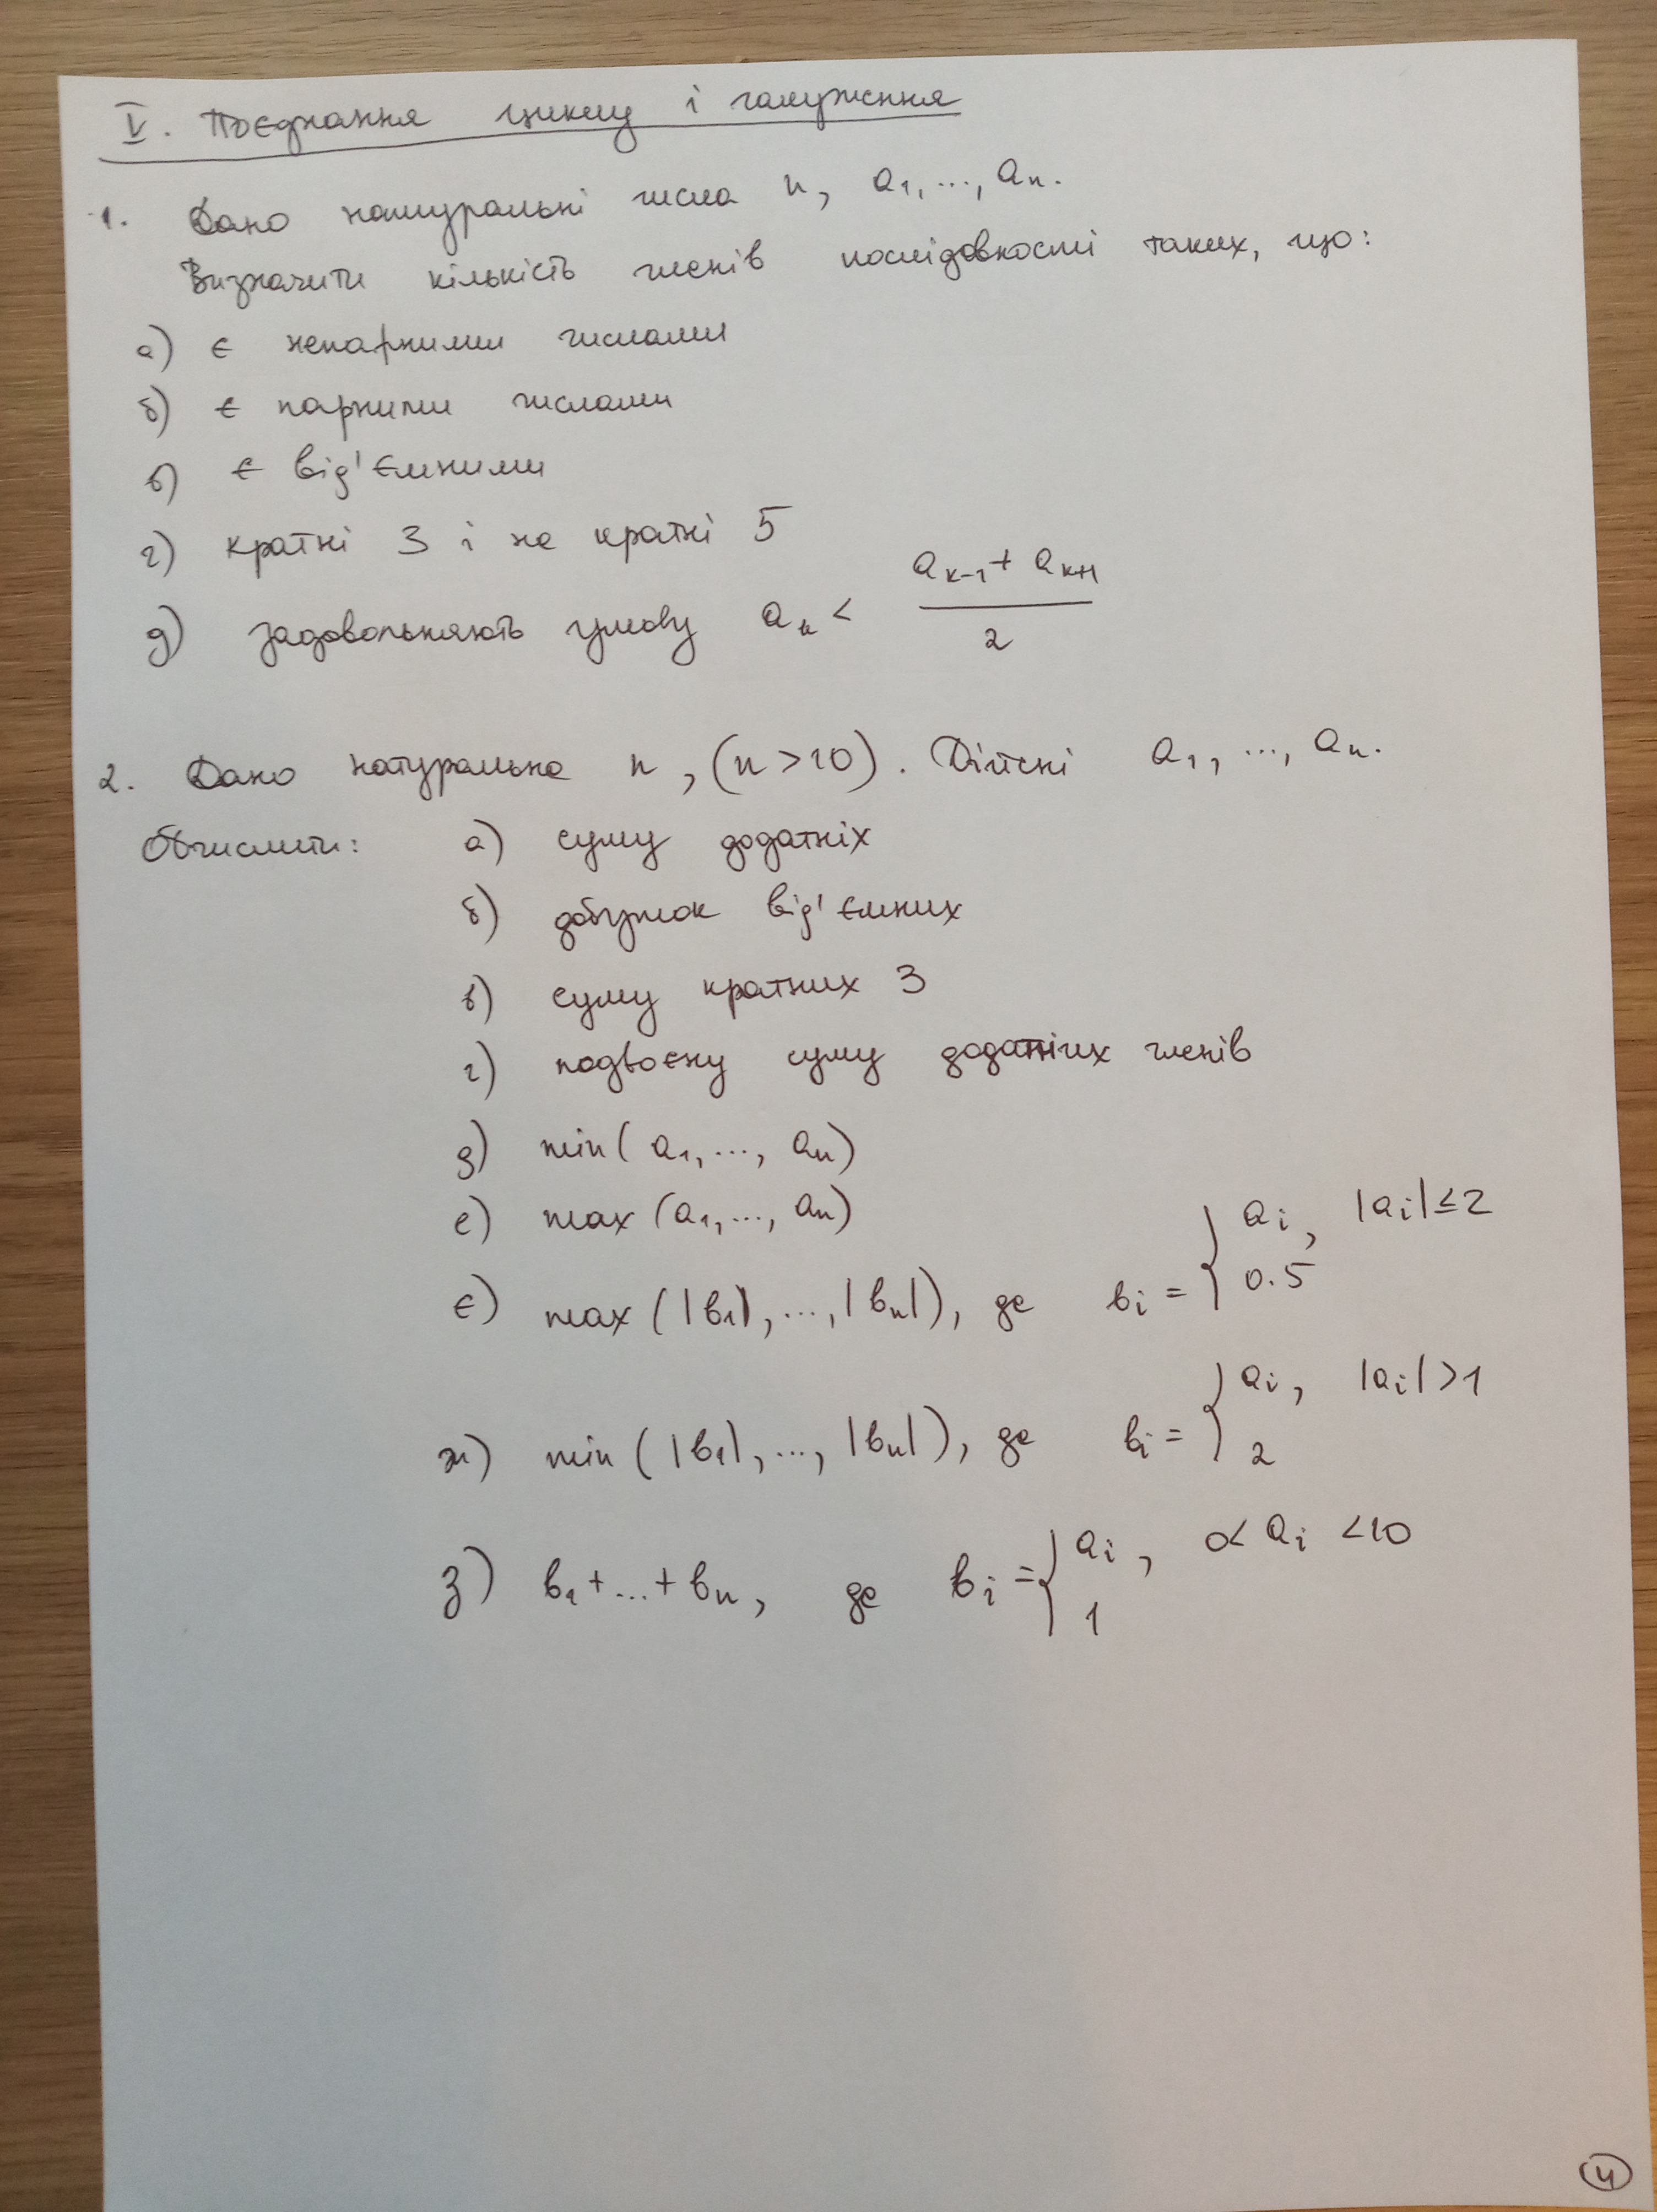 V. Поєднання циклу і галуження
1. Дано натуральні числа n, a₁, ..., aₙ.
Визначити кількість членів послідовності таких, що:
а) є непарними числами
б) є парними числами
в) є від'ємними
г) кратні 3 і не кратні 5
д) задовольняють умову aₖ < (aₖ₋₁ + aₖ₊₁) / 2
2. Дано натуральне n, (n > 10). Дійсні a₁, ..., aₙ.
Обчислити: а) суму додатніх
б) добуток від'ємних
в) суму кратних 3
г) подвоєну суму додатніх членів
д) min(a₁, ..., aₙ)
е) max(a₁, ..., aₙ)
є) max(|b₁|, ..., |bₙ|), де bᵢ = { aᵢ, |aᵢ| ≤ 2
0.5
ж) min(|b₁|, ..., |bₙ|), де bᵢ = { aᵢ, |aᵢ| > 1
2
з) b₁ + ... + bₙ, де bᵢ = { aᵢ, 0 < aᵢ < 10
1
4